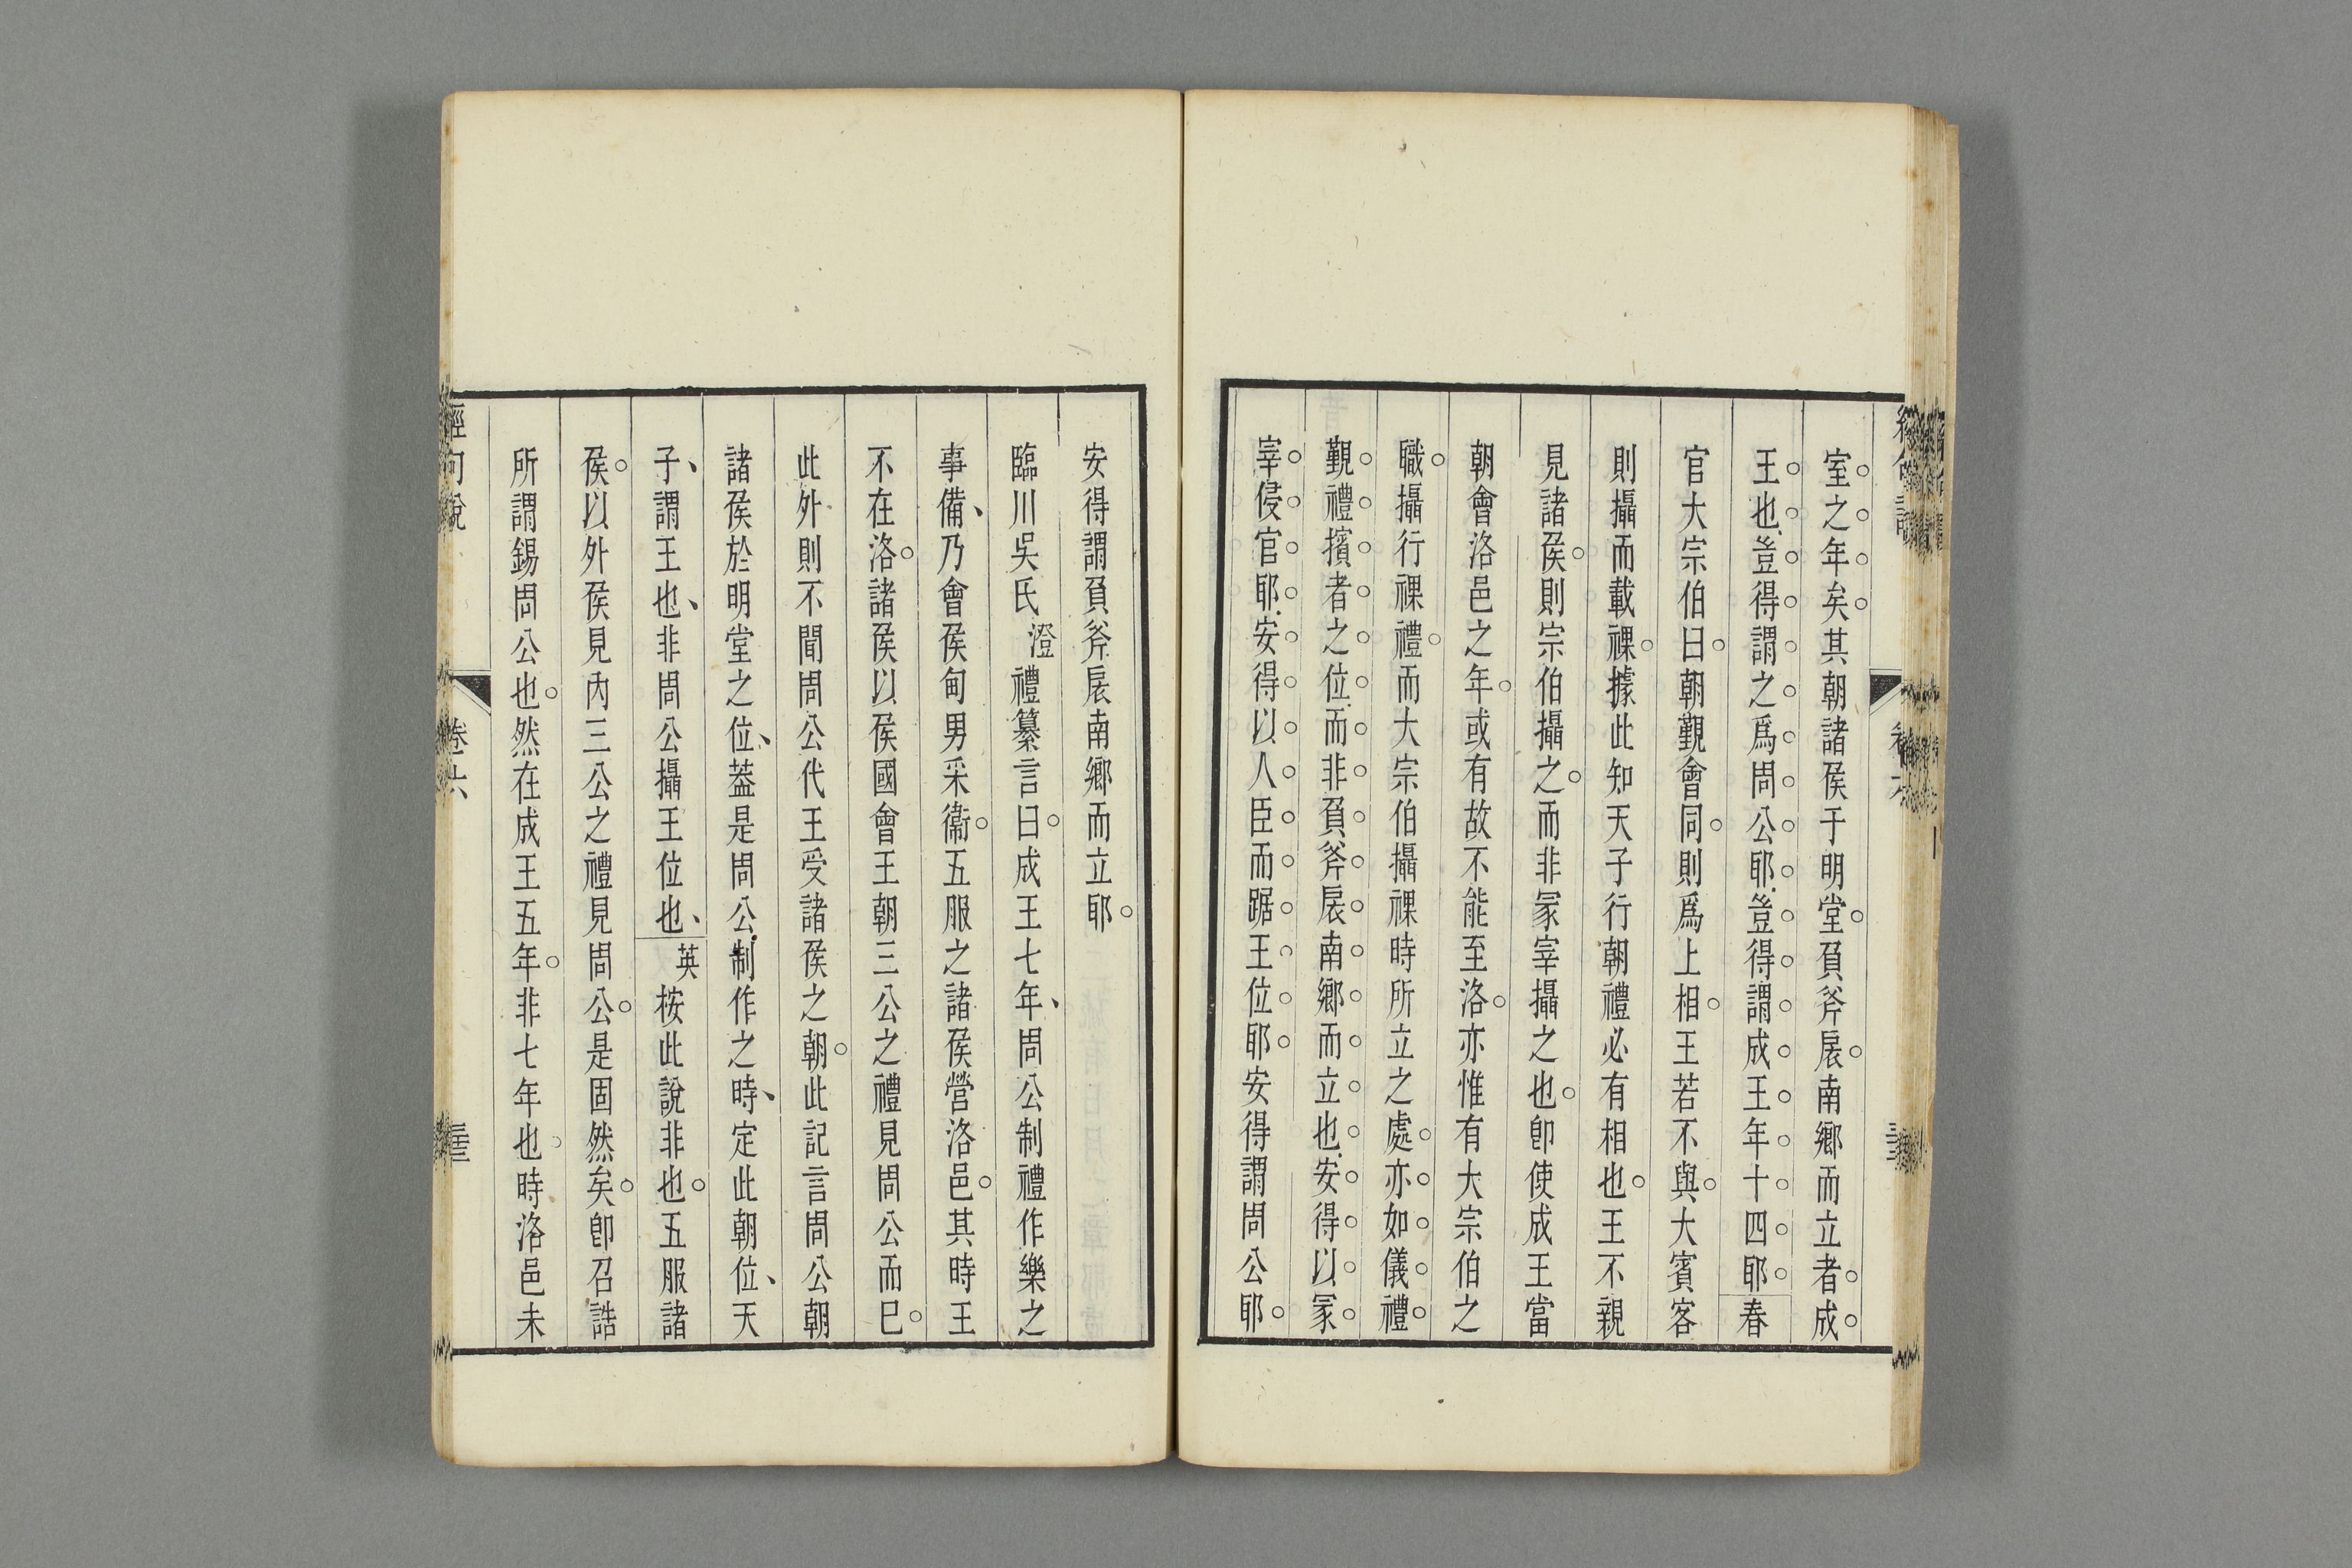 室之年矣其朝諸侯于明堂負斧扆南鄉而立者成
王也豈得謂之爲周公耶豈得謂成王年十四耶春
官大宗伯曰朝覲會同則爲上相王若不與大賓客
則攝而載祼據此知天子行朝禮必有相也王不親
見諸侯則宗伯攝之而非冢宰攝之也卽使成王當
朝會洛邑之年或有故不能至洛亦惟有大宗伯之
職攝行祼禮而大宗伯攝祼時所立之處亦如儀禮
覲禮擯者之位而非負斧扆南鄉而立也安得以冢
宰侵官耶安得以人臣而踞王位耶安得謂周公耶
安得謂負斧扆南鄉而立耶
臨川吳氏澄禮纂言曰成王七年周公制禮作樂之
事備乃會侯甸男采衞五服之諸侯營洛邑其時王
不在洛諸侯以侯國會王朝三公之禮見周公而巳
此外則不聞周公代王受諸侯之朝此記言周公朝
諸侯於明堂之位葢是周公制作之時定此朝位天
子謂王也非周公攝王位也英桉此說非也五服諸
侯以外侯見內三公之禮見周公是固然矣卽召誥
所謂錫周公也然在成王五年非七年也時洛邑未
經句說 卷六